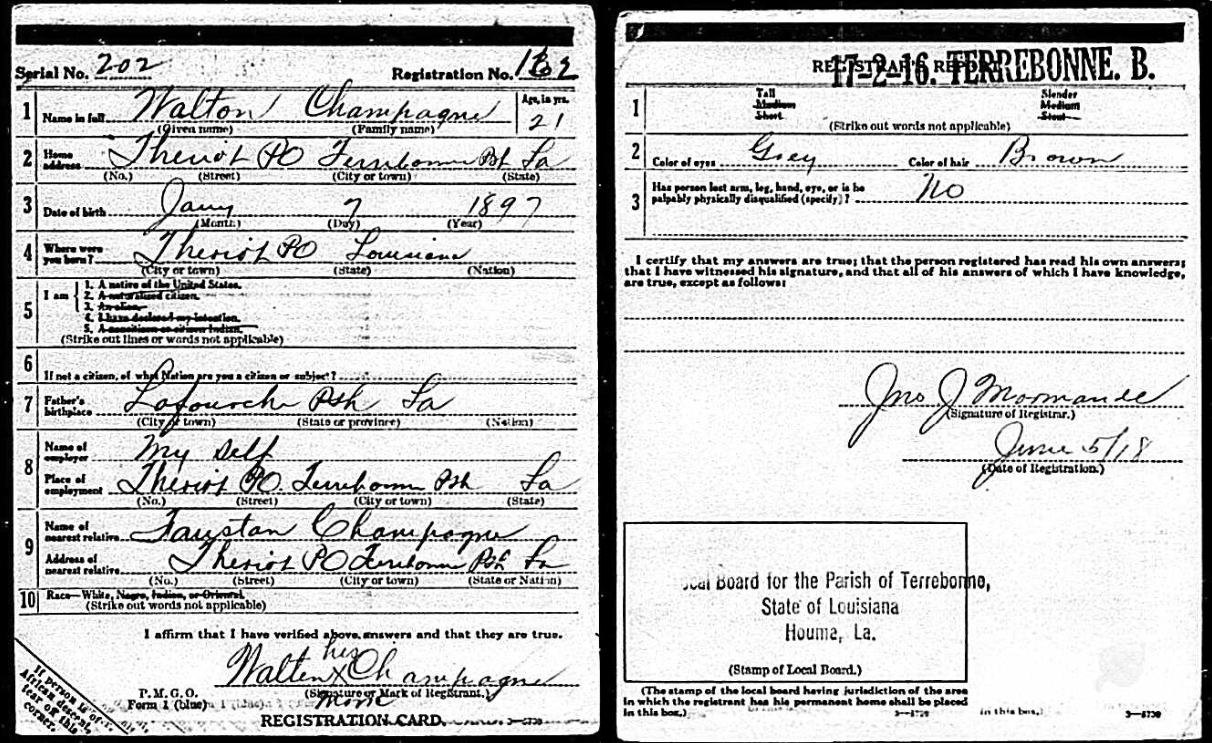 Serial No. 202 Registration No.
1 Name in full Walton Champagne Age, in yrs. 21
(Given name) (Family name)
2 Home address Theriot PO Terrebonne Psh La
(No.) (Street) (City or town) (State)
3 Date of birth Jany 7 1897
(Month) (Day) (Year)
4 Where were you born? Theriot PO Louisiana
(City or town) (State) (Nation)
5 I am
1. A native of the United States.
2. A naturalized citizen.
3. An alien.
4. I have declared my intention.
5. A noncitizen or citizen Indian.
(Strike out lines or words not applicable)
6 If not a citizen, of what Nation are you a citizen or subject?
7 Father's birthplace Lafourche Psh La
(City or town) (State or province) (Nation)
8 Name of employer My self
Place of employment Theriot PO. Terrebonne Psh La
(No.) (Street) (City or town) (State)
9 Name of nearest relative Faustan Champagne
Address of nearest relative Theriot PO Terrebonne Psh La
(No.) (Street) (City or town) (State or Nation)
10 Race—White, Negro, Indian, or Oriental.
(Strike out words not applicable)
I affirm that I have verified above answers and that they are true.
his
Walton x Champagne
P. M. G. O. (Signature or Mark of Registrant.)
Form 1 (blue) mark
REGISTRATION CARD.
If person is of African descent, tear off this corner.
REGISTRAR'S REPORT
17-2-16. TERREBONNE. B.
1 Tall Slender
Medium Medium
Short Stout
(Strike out words not applicable)
2 Color of eyes Grey Color of hair Brown
3 Has person lost arm, leg, hand, eye, or is he
palpably physically disqualified (specify)? No
I certify that my answers are true; that the person registered has read his own answers;
that I have witnessed his signature, and that all of his answers of which I have knowledge,
are true, except as follows:
Jno J Mormande
(Signature of Registrar.)
June 5/18
(Date of Registration.)
cal Board for the Parish of Terrebonne,
State of Louisiana
Houma, La.
(Stamp of Local Board.)
(The stamp of the local board having jurisdiction of the area
in which the registrant has his permanent home shall be placed
in this box.) 3—5730 in this box.) 3—5730